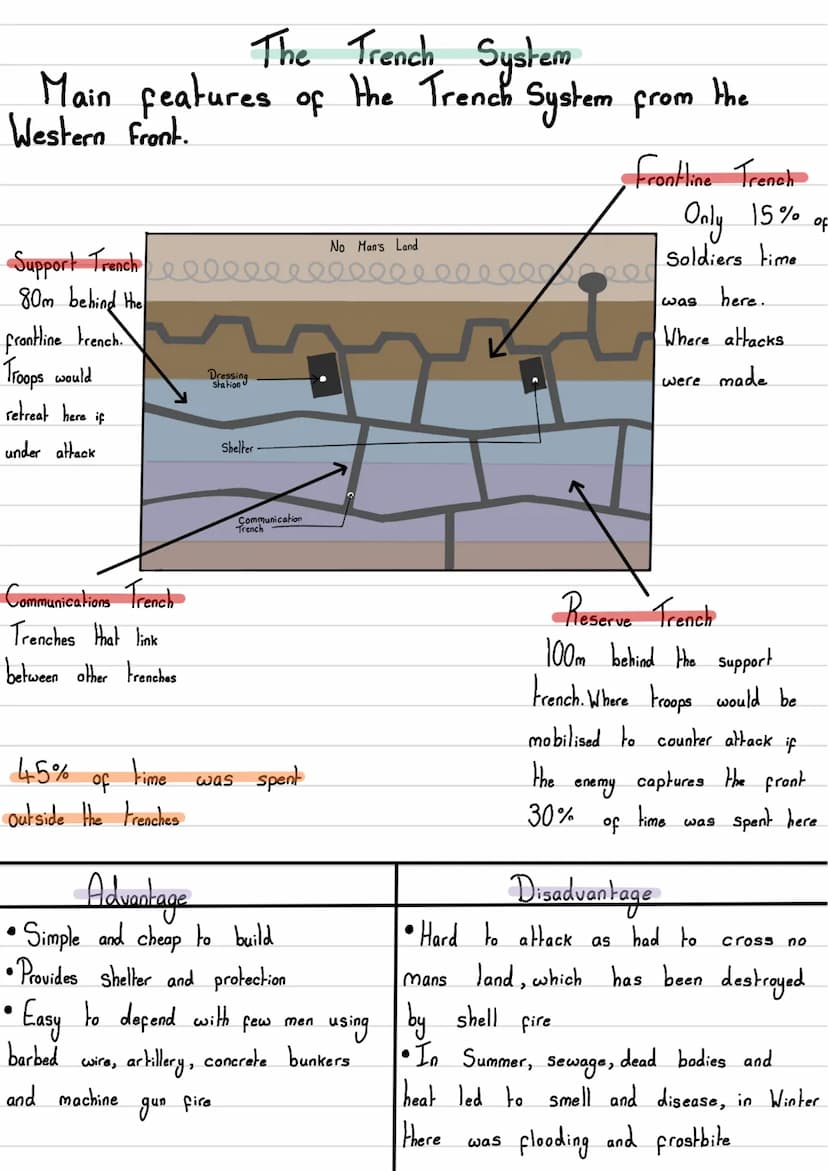 The Trench System
Main features of the Trench System from the
Western Front.
Frontline Trench
Only 15% of
Soldiers time
was here.
Where attacks
were made
Support Trench
80m behind the
frontline trench.
Troops would
retreat here if
under attack
No Man's Land
Dressing
station
Shelter
Communication
Trench
Communications Trench
Trenches that link
between other trenches
Reserve Trench
100m behind the support
trench. Where troops would be
mobilised to counter attack if
the enemy captures the front
30% of time was spent here
45% of time was spent
outside the trenches
Advantage
• Simple and cheap to build
• Provides shelter and protection
• Easy to defend with few men using
barbed wire, artillery, concrete bunkers
and machine gun fire
Disadvantage
• Hard to attack as had to cross no
mans land, which has been destroyed
by shell fire
• In Summer, sewage, dead bodies and
heat led to smell and disease, in Winter
there was flooding and frostbite